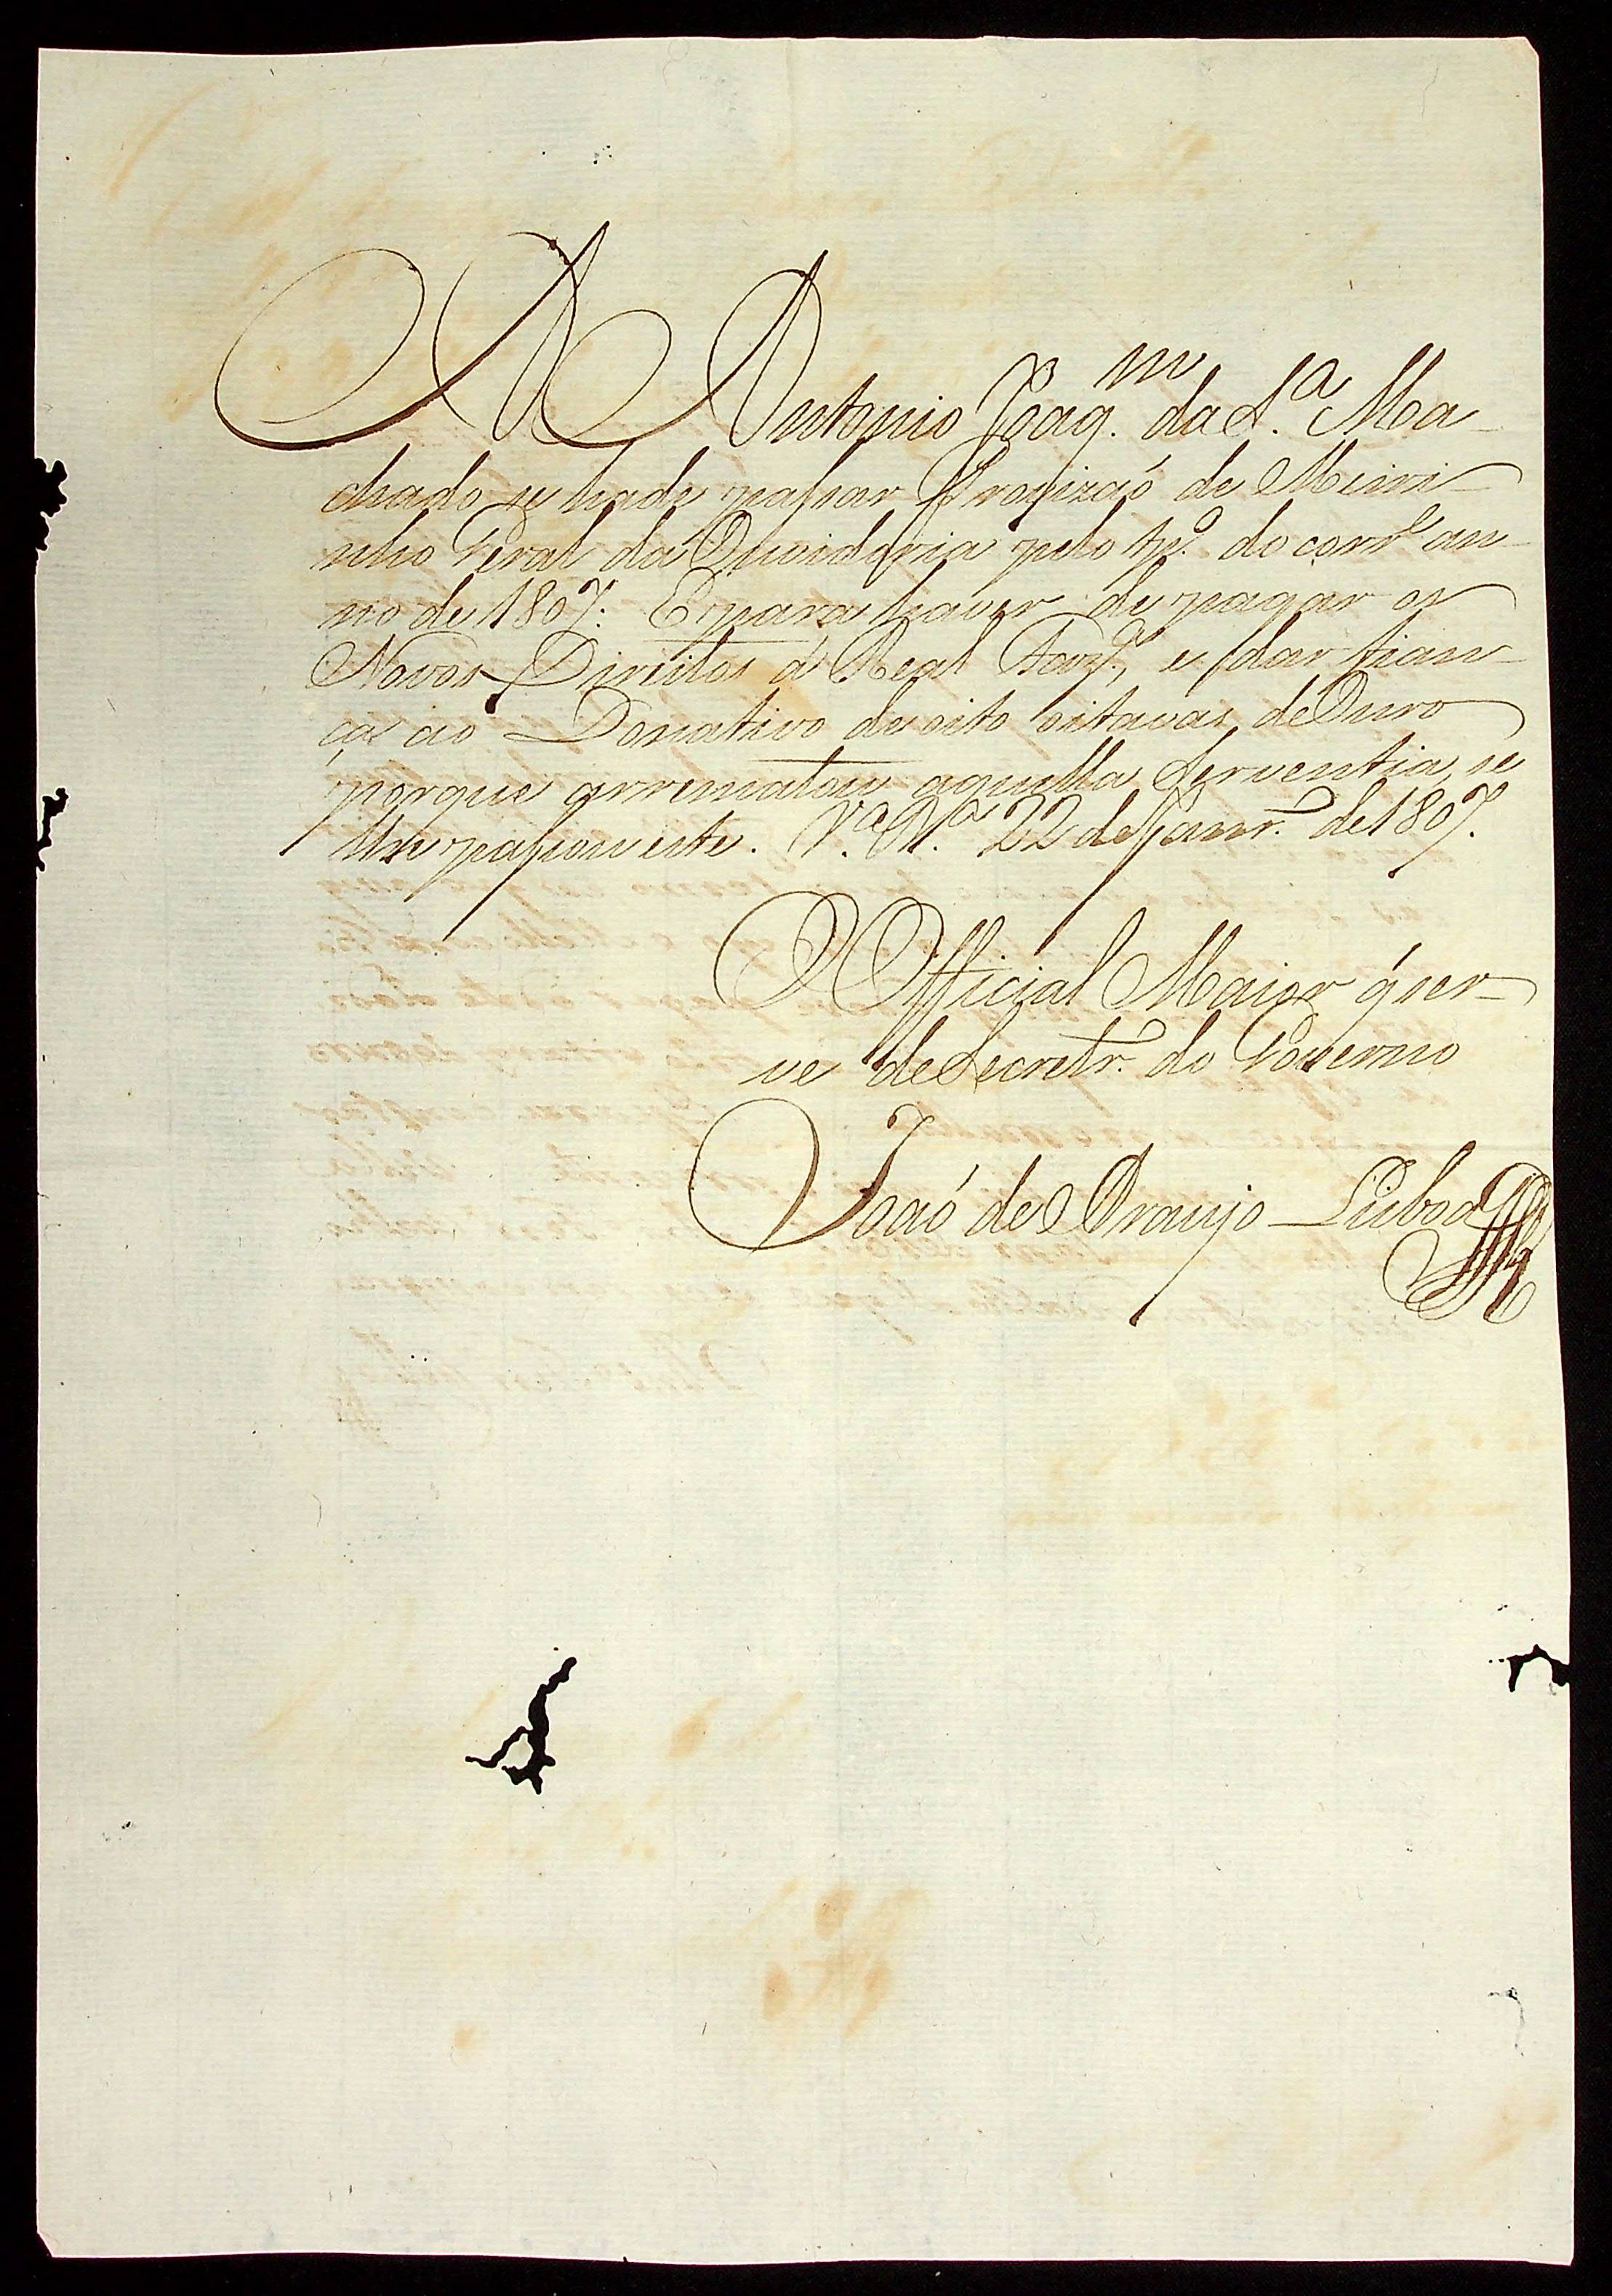 A Antonio Joaqm. da Sa. Ma-
chado se hade passar Provizaõ de Meiri-
nho Geral da Ouvidoria pelo tpo. do corre. an-
no de 1807. E para haver de pagar os
Novos Direitos á Real Fazda., e dar fian-
ça ao Donativo de oito oitavas de Ouro
porque arrematou aquella Serventia, se
lhe passou este. Va. Ba. 22 de Janro. de 1807.
O Official Maior q̃ ser-
ve de Secretro. do Governo
Joaõ de Araujo Lisboa